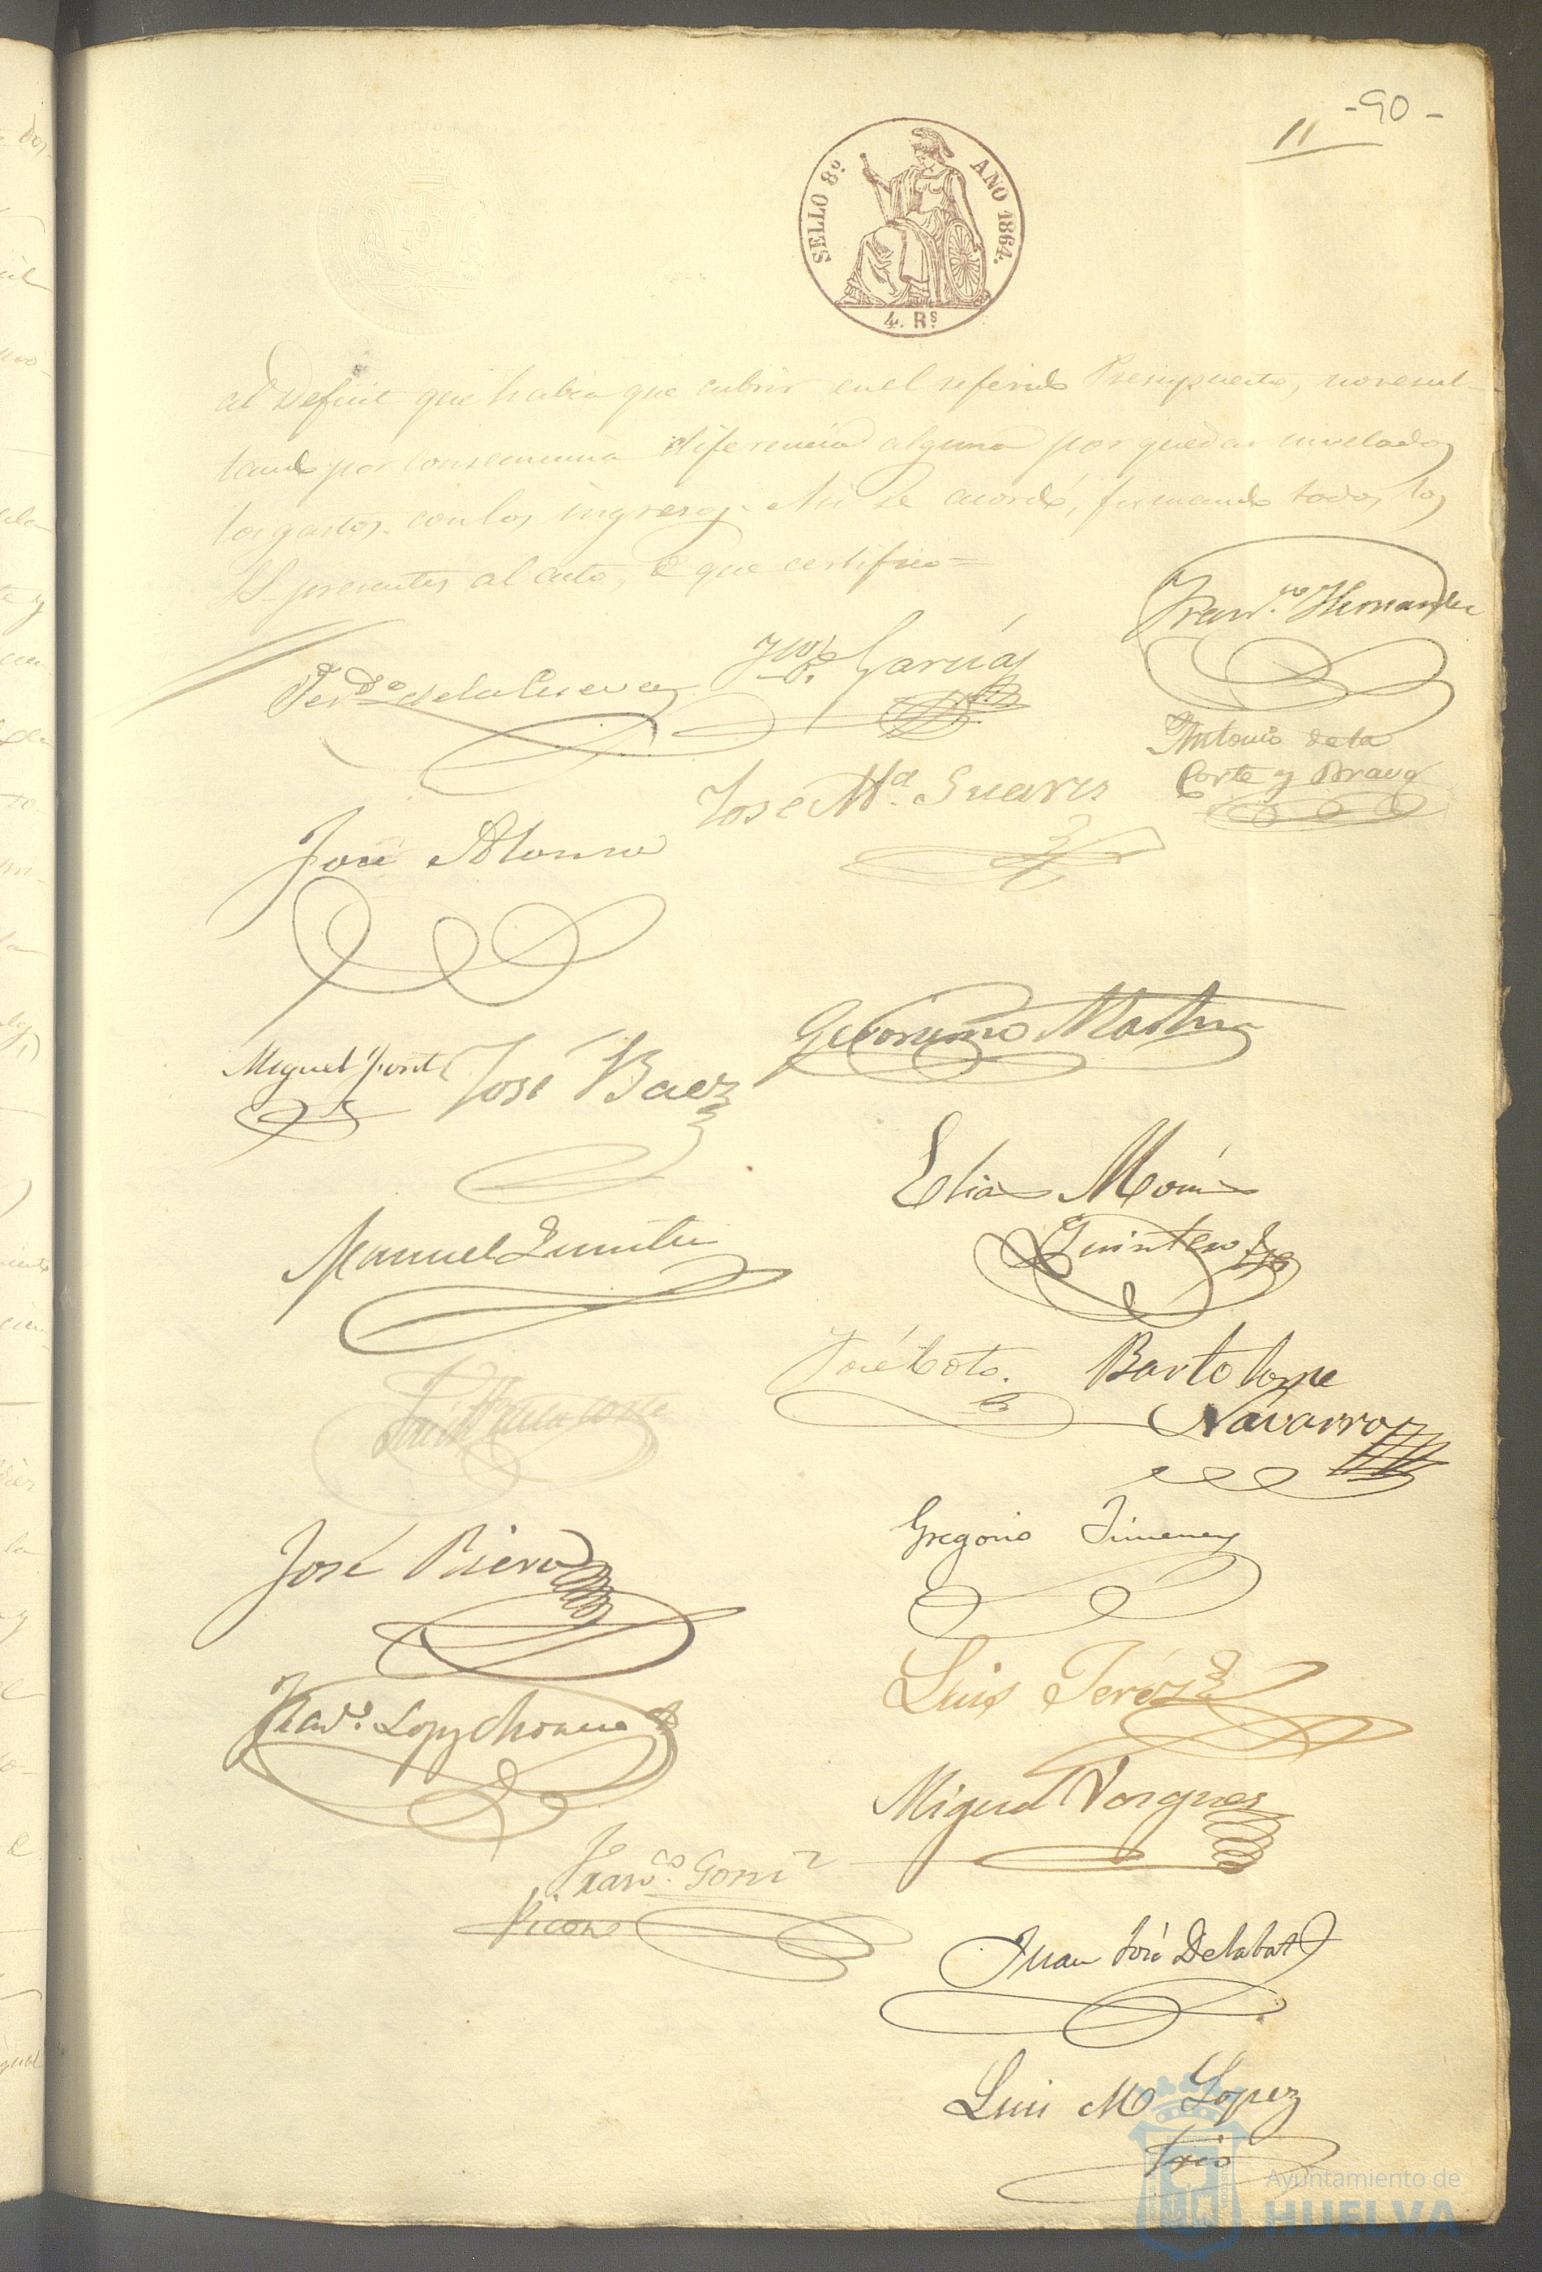 -90-
11
SELLO 8º AÑO 1864.
4. Rs
al Deficit que habia que cubrir en el referido Presupuesto, no resul-
tando por consecuencia diferencia alguna por quedar nivelados
los gastos con los ingresos. Asi se acordó, firmando todos los
SS. presentes al acto, de que certifico=
Franco. Hernandez
Ferdo. de la Cueva
García
Antonio de la
Corte y Bravo
José Ma. Suares
José Alonso
Geronimo Martin
Miguel
José Baez
Elias Moris
Quintero
Manuel
José Coto.
Bartolome
Navarro
José
Gregorio Jimenez
Luis Jeréz
Franco. Lopez
Miguel Vazquez
Franco. Gomz
Picon
Juan José Delabat
Luis M Lopez
Ayuntamiento de
HUELVA